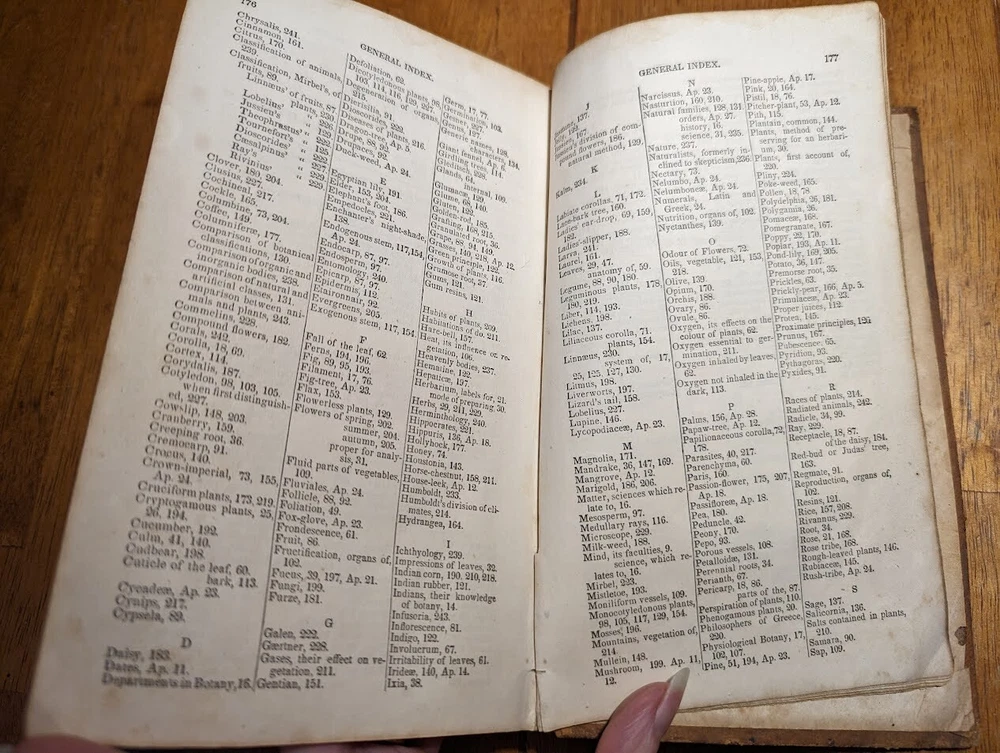 176
GENERAL INDEX.
Chrysalis, 241.
Cinnamon, 161.
Citrus, 170.
Classification of animals,
239.
Classification, Mirbel's, of
fruits, 89.
Linnæus' of fruits, 87
Lobelius' plants, 230
Jussieu's " 129
Theophrastus' " 220
Tournefort's " 129
Dioscorides' " 222
Cæsalpinus' "
Ray's " 229
Rivinius' " 229
Clover, 180, 204.
Clusius, 227.
Cochineal, 217.
Cockle, 165.
Columbine, 73, 204.
Coffee, 149.
Columniferæ, 177.
Comparison of botanical
classifications, 130.
Comparison of organic and
inorganic bodies, 238.
Comparison of natural and
artificial classes, 131.
Comparison between ani-
mals and plants, 243.
Commeline, 228.
Compound flowers, 182.
Corals, 242.
Corolla, 18, 69.
Cortex, 114.
Corydalis, 187.
Cotyledon, 98, 103, 105.
when first distinguish-
ed, 227.
Cowslip, 148, 203.
Cranberry, 159.
Creeping root, 36.
Cremocarp, 91.
Crocus, 140.
Crown-imperial, 73, 155,
Ap. 24.
Cruciform plants, 173, 219.
Cryptogamous plants, 25,
26, 194.
Cucumber, 192.
Culm, 41, 140.
Cudbear, 198.
Cuticle of the leaf, 60.
bark, 113.
Cycadeæ, Ap. 23.
Cynips, 217.
Cypsela, 89.
D
Daisy, 183.
Dates, Ap. 11.
Departments in Botany, 16.
Defoliation, 62.
Dicotyledonous plants, 98,
103, 114, 116, 129, 227.
Degeneration of organs,
215.
Dieresilis, 91.
Dioscorides, 222.
Diseases of plants, 216.
Dragon-tree, Ap. 5.
Drupe, 88, 92.
Drupaceæ, 92.
Duck-weed, Ap. 24.
E
Egyptian lily, 191.
Elder, 153, 204.
Elephant's foot, 186.
Empedocles, 221.
Enchanter's night-shade,
132.
Endogenous stem, 117, 154,
Ap. 24.
Endocarp, 87, 97.
Endosperm, 97.
Entomology, 240.
Epicarp, 87, 97.
Epidermis, 112.
Etaironnair, 92.
Evergreens, 205.
Exogenous stem, 117, 154.
F
Fall of the leaf, 62.
Ferns, 194, 196.
Fig, 89, 95, 193.
Filament, 17, 76.
Fig-tree, Ap. 23.
Flax, 153.
Flowerless plants, 129.
Flowers of spring, 202.
summer, 204.
autumn, 205.
proper for analy-
sis, 31.
Fluid parts of vegetables,
109.
Fluviales, Ap. 24.
Foliation, 49.
Follicle, 88, 92.
Fox-glove, Ap. 23.
Frondescence, 61.
Fruit, 86.
Fructification, organs of,
102.
Fucus, 39, 197, Ap. 21.
Fungi, 199.
Furze, 181.
G
Galen, 222.
Gærtner, 228.
Gases, their effect on ve-
getation, 211.
Gentian, 151.
Germ, 17, 77.
Germination, 103.
Gesner, 227.
Genus, 127.
Generic names, 128.
Giant fennel, Ap.
Girdling trees, 114.
Glands, 64.
internal, 109.
Glumaceæ, 129, 190.
Glume, 68, 140.
Golden-rod, 185.
Grafting, 168, 215.
Granulated root, 36.
Grape, 88, 94.
Grasses, 140, 218, Ap. 12.
Green principle, 122.
Growth of plants, 116.
Grumose root, 37.
Gum, 121.
Gum resins, 121.
H
Habits of plants, 209.
Habitations of do. 211.
Hare-bell, 157.
Heat, its influence on ve-
getation, 106.
Heavenly bodies, 237.
Hematine, 122.
Hepatica, 197.
Herbarium, labels for, 21.
mode of preparing, 30.
Herbs, 29, 211, 229.
Herminthology, 240.
Hippocrates, 221.
Hippuris, 136, Ap. 18.
Hollyhock, 177.
Honey, 74.
Houstonia, 143.
Horse-chestnut, 158, 211.
House-leek, Ap. 12.
Humboldt, 233.
Humboldt's division of cli-
mates, 214.
Hydrangea, 164.
I
Ichthyology, 239.
Impressions of leaves, 32.
Indian corn, 190, 210, 218.
Indian rubber, 121.
Indians, their knowledge
of botany, 14.
Infusoria, 243.
Inflorescence, 81.
Indigo, 122.
Involucrum, 67.
Irritability of leaves, 61.
Irideæ, 140, Ap. 14.
Ixia, 38.
GENERAL INDEX.
177
J
137.
167.
division of com-
pound flowers, 186.
natural method, 129,
K
Kalm, 234.
L
Labiate corollas, 71, 172.
Lace-bark tree, 160.
Ladies' ear-drop, 69, 159,
182.
Ladies'-slipper, 188.
Larva, 241.
Laurel, 161.
Leaves, 29, 47.
anatomy of, 59.
Legume, 88, 90, 180.
Leguminous plants, 178,
180, 219.
Liber, 114, 193.
Lichens, 198.
Lilac, 137.
Liliaceous corolla, 71.
154.
Linnæus, 230.
system of, 17,
25, 125, 127, 130.
Litmus, 198.
Liverworts, 197.
Lizard's tail, 158.
Lobelius, 227.
Lupine, 146.
Lycopodiaceæ, Ap. 23.
M
Magnolia, 171.
Mandrake, 36, 147, 169.
Mangrove, Ap. 12.
Marigold, 186, 206.
Matter, sciences which re-
late to, 16.
Mesosperm, 97.
Medullary rays, 116.
Microscope, 229.
Milk-weed, 188.
Mind, its faculties, 9.
science, which re-
lates to, 16.
Mirbel, 223.
Mistletoe, 193.
Moniliform vessels, 109.
Monocotyledonous plants,
98, 105, 117, 129, 154.
Mosses, 196.
Mountains, vegetation of,
214.
Mullein, 148.
Mushroom, 199. Ap. 11,
12.
N
Narcissus, Ap. 23.
Nasturtion, 160, 210.
Natural families, 128, 131.
orders, Ap. 27.
history, 16.
science, 31, 235.
Nature, 237.
Naturalists, formerly in-
clined to skepticism, 236.
Nectary, 73.
Nelumbo, Ap. 24.
Nelumboneæ, Ap. 24.
Numerals, Latin and
Greek, 24.
Nutrition, organs of, 102.
Nyctanthes, 139.
O
Odour of Flowers, 72.
Oils, vegetable, 121, 153,
218.
Olive, 139.
Opium, 170.
Orchis, 188.
Ovary, 86.
Ovule, 86.
Oxygen, its effects on the
colour of plants, 62.
Oxygen essential to ger-
mination, 211.
Oxygen inhaled by leaves,
62.
Oxygen not inhaled in the
dark, 113.
P
Palms, 156, Ap. 28.
Papaw-tree, Ap. 12.
Papilionaceous corolla, 72,
178.
Parasites, 40, 217.
Parenchyma, 60.
Paris, 160.
Passion-flower, 175, 207,
Ap. 18.
Passifloreæ, Ap. 18.
Pea, 180.
Peduncle, 42.
Peony, 170.
Pepo, 93.
Porous vessels, 108.
Petalloideæ, 131.
Perennial roots, 34.
Perianth, 67.
Pericarp, 18, 86.
parts of the, 87.
Perspiration of plants, 110.
Phenogamous plants, 20.
Philosophers of Greece,
220.
Physiological Botany, 17,
102, 107.
Pine, 51, 194, Ap. 23.
Pine-apple, Ap. 17.
Pink, 20, 164.
Pistil, 18, 76.
Pitcher-plant, 53, Ap. 12.
Pith, 115.
Plantain, common, 144.
Plants, method of pre-
serving for an herbari-
um, 30.
Plants, first account of,
220.
Pliny, 224.
Poke-weed, 165.
Pollen, 18, 78
Polydelphia, 26, 181.
Polygamia, 26.
Pomaceæ, 168.
Pomegranate, 167.
Poppy, 22, 170.
Poplar, 193, Ap. 11.
Pond-lily, 169, 205.
Potato, 36, 147.
Premorse root, 35.
Prickles, 63.
Prickly-pear, 166, Ap. 5.
Primulaceæ, Ap. 23.
Proper juices, 112.
Protea, 145.
Proximate principles, 121
Prunus, 167.
Pubescence, 65.
Pyridion, 93.
Pythagoras, 220.
Pyxides, 91.
R
Races of plants, 214.
Radiated animals, 242.
Radicle, 34, 99.
Ray, 229.
Receptacle, 18, 87.
of the daisy, 184.
Red-bud or Judas' tree,
163.
Regmate, 91.
Reproduction, organs of,
102.
Resins, 121.
Rice, 157, 208.
Rivannus, 229.
Root, 34.
Rose, 21, 168.
Rose tribe, 168.
Rough-leaved plants, 146.
Rubiaceæ, 145.
Rush-tribe, Ap. 24.
S
Sage, 137.
Salicornia, 136.
Salts contained in plants,
210.
Samara, 90.
Sap, 109.